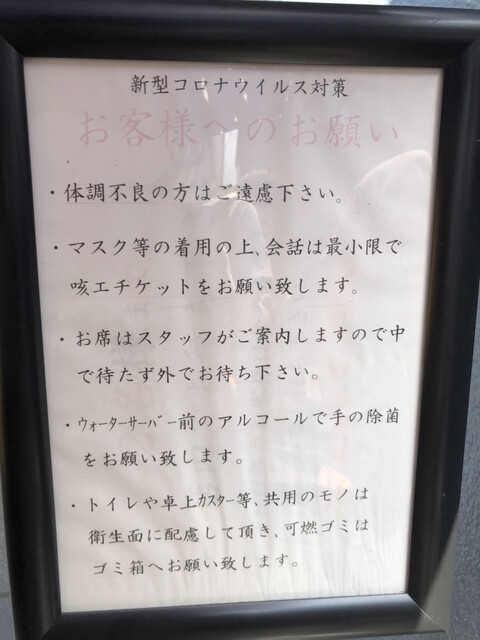 新型コロナウイルス対策
お客様へのお願い
・体調不良の方はご遠慮下さい。
・マスク等の着用の上、会話は最小限で
咳エチケットをお願い致します。
・お席はスタッフがご案内しますので中
で待たず外でお待ち下さい。
・ウォーターサーバー前のアルコールで手の除菌
をお願い致します。
・トイレや卓上カスター等、共用のモノは
衛生面に配慮して頂き、可燃ゴミは
ゴミ箱へお願い致します。